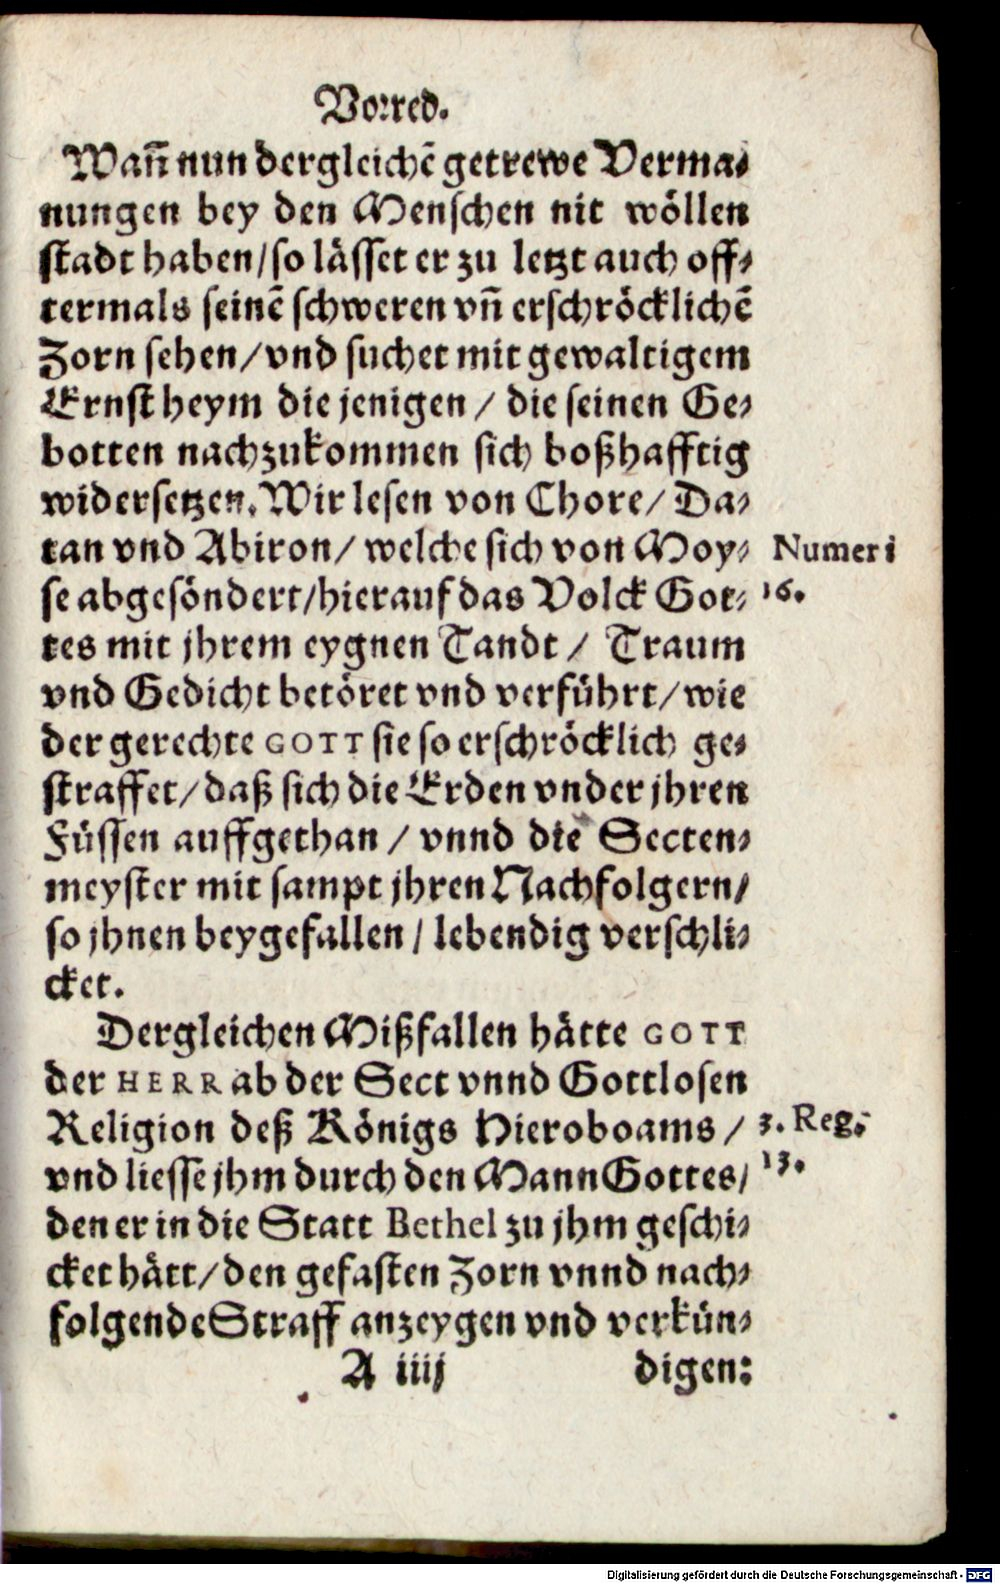 Vorred.
Wañ nun dergleichẽ getrewe Verma⸗
nungen bey den Menschen nit wöllen
stadt haben/so lässet er zu letzt auch off⸗
termals seinẽ schweren vñ erschröcklichẽ
Zorn sehen/vnd suchet mit gewaltigem
Ernst heym die jenigen/ die seinen Ge⸗
botten nachzukommen sich boßhafftig
widersetzen. Wir lesen von Chore/ Da⸗
tan vnd Abiron/ welche sich von Moy⸗ Numeri
se abgesöndert/hierauf das Volck Got⸗ 16.
tes mit jhrem eygnen Tandt/ Traum
vnd Gedicht betöret vnd verführt/wie
der gerechte GOTT sie so erschröcklich ge⸗
straffet/daß sich die Erden vnder jhren
Füssen auffgethan/ vnnd die Secten⸗
meyster mit sampt jhren Nachfolgern/
so jhnen beygefallen/ lebendig verschli⸗
cket.
Dergleichen Mißfallen hätte GOTT
der HERR ab der Sect vnnd Gottlosen
Religion deß Königs Hieroboams/ 3. Reg.
vnd liesse jhm durch den Mann Gottes/ 13.
den er in die Statt Bethel zu jhm geschi⸗
cket hätt/den gefasten Zorn vnnd nach⸗
folgende Straff anzeygen vnd verkün⸗
A iiij digen:
Digitalisierung gefördert durch die Deutsche Forschungsgemeinschaft - DFG